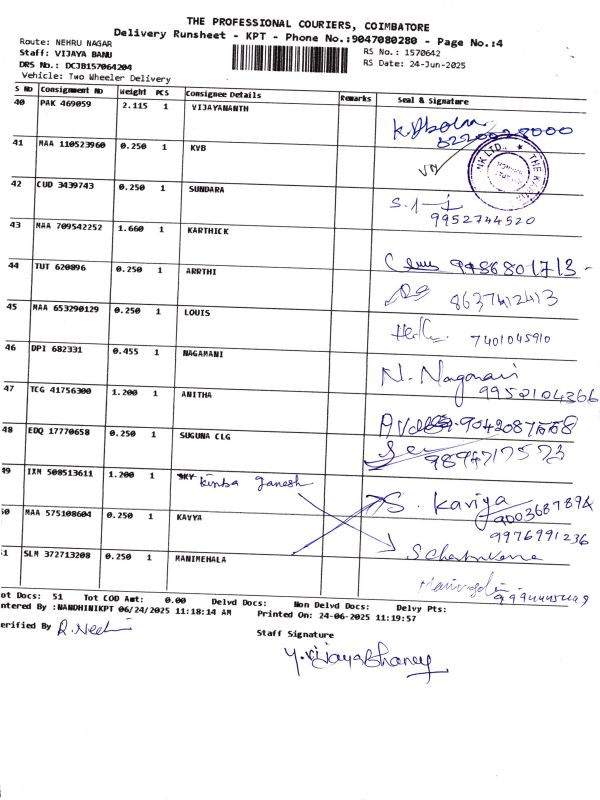 THE PROFESSIONAL COURIERS, COIMBATORE
Delivery Runsheet - KPT - Phone No.:9047080280 - Page No.:4
Route: NEHRU NAGAR
Staff: VIJAYA BANU
DRS No.: DCJB157064204
Vehicle: Two Wheeler Delivery
RS No.: 1570642
RS Date: 24-Jun-2025
S NO Consignment No Weight PCS Consignee Details Remarks Seal & Signature
40 PAK 469059 2.115 1 VIJAYANANTH
41 MAA 110523960 0.250 1 KVB
42 CUD 3439743 0.250 1 SUNDARA
9952744520
43 MAA 709542252 1.660 1 KARTHICK
44 TUT 620896 0.250 1 ARRTHI
8637412413
45 MAA 653290129 0.250 1 LOUIS
7401045910
46 DPI 682331 0.455 1 NAGAMANI
N. Nagamani
9952104366
47 TCG 41756300 1.200 1 ANITHA
48 EDQ 17770658 0.250 1 SUGUNA CLG
49 IXM 508513611 1.200 1 SKY kinba ganesh
S. Kaviya
50 MAA 575108604 0.250 1 KAVYA
9976991236
51 SLM 372713208 0.250 1 MANIMEHALA
ot Docs: 51 Tot COD Amt: 0.00 Delvd Docs: Non Delvd Docs: Delvy Pts:
ntered By :NANDHINIKPT 06/24/2025 11:18:14 AM Printed On: 24-06-2025 11:19:57
erified By
Staff Signature